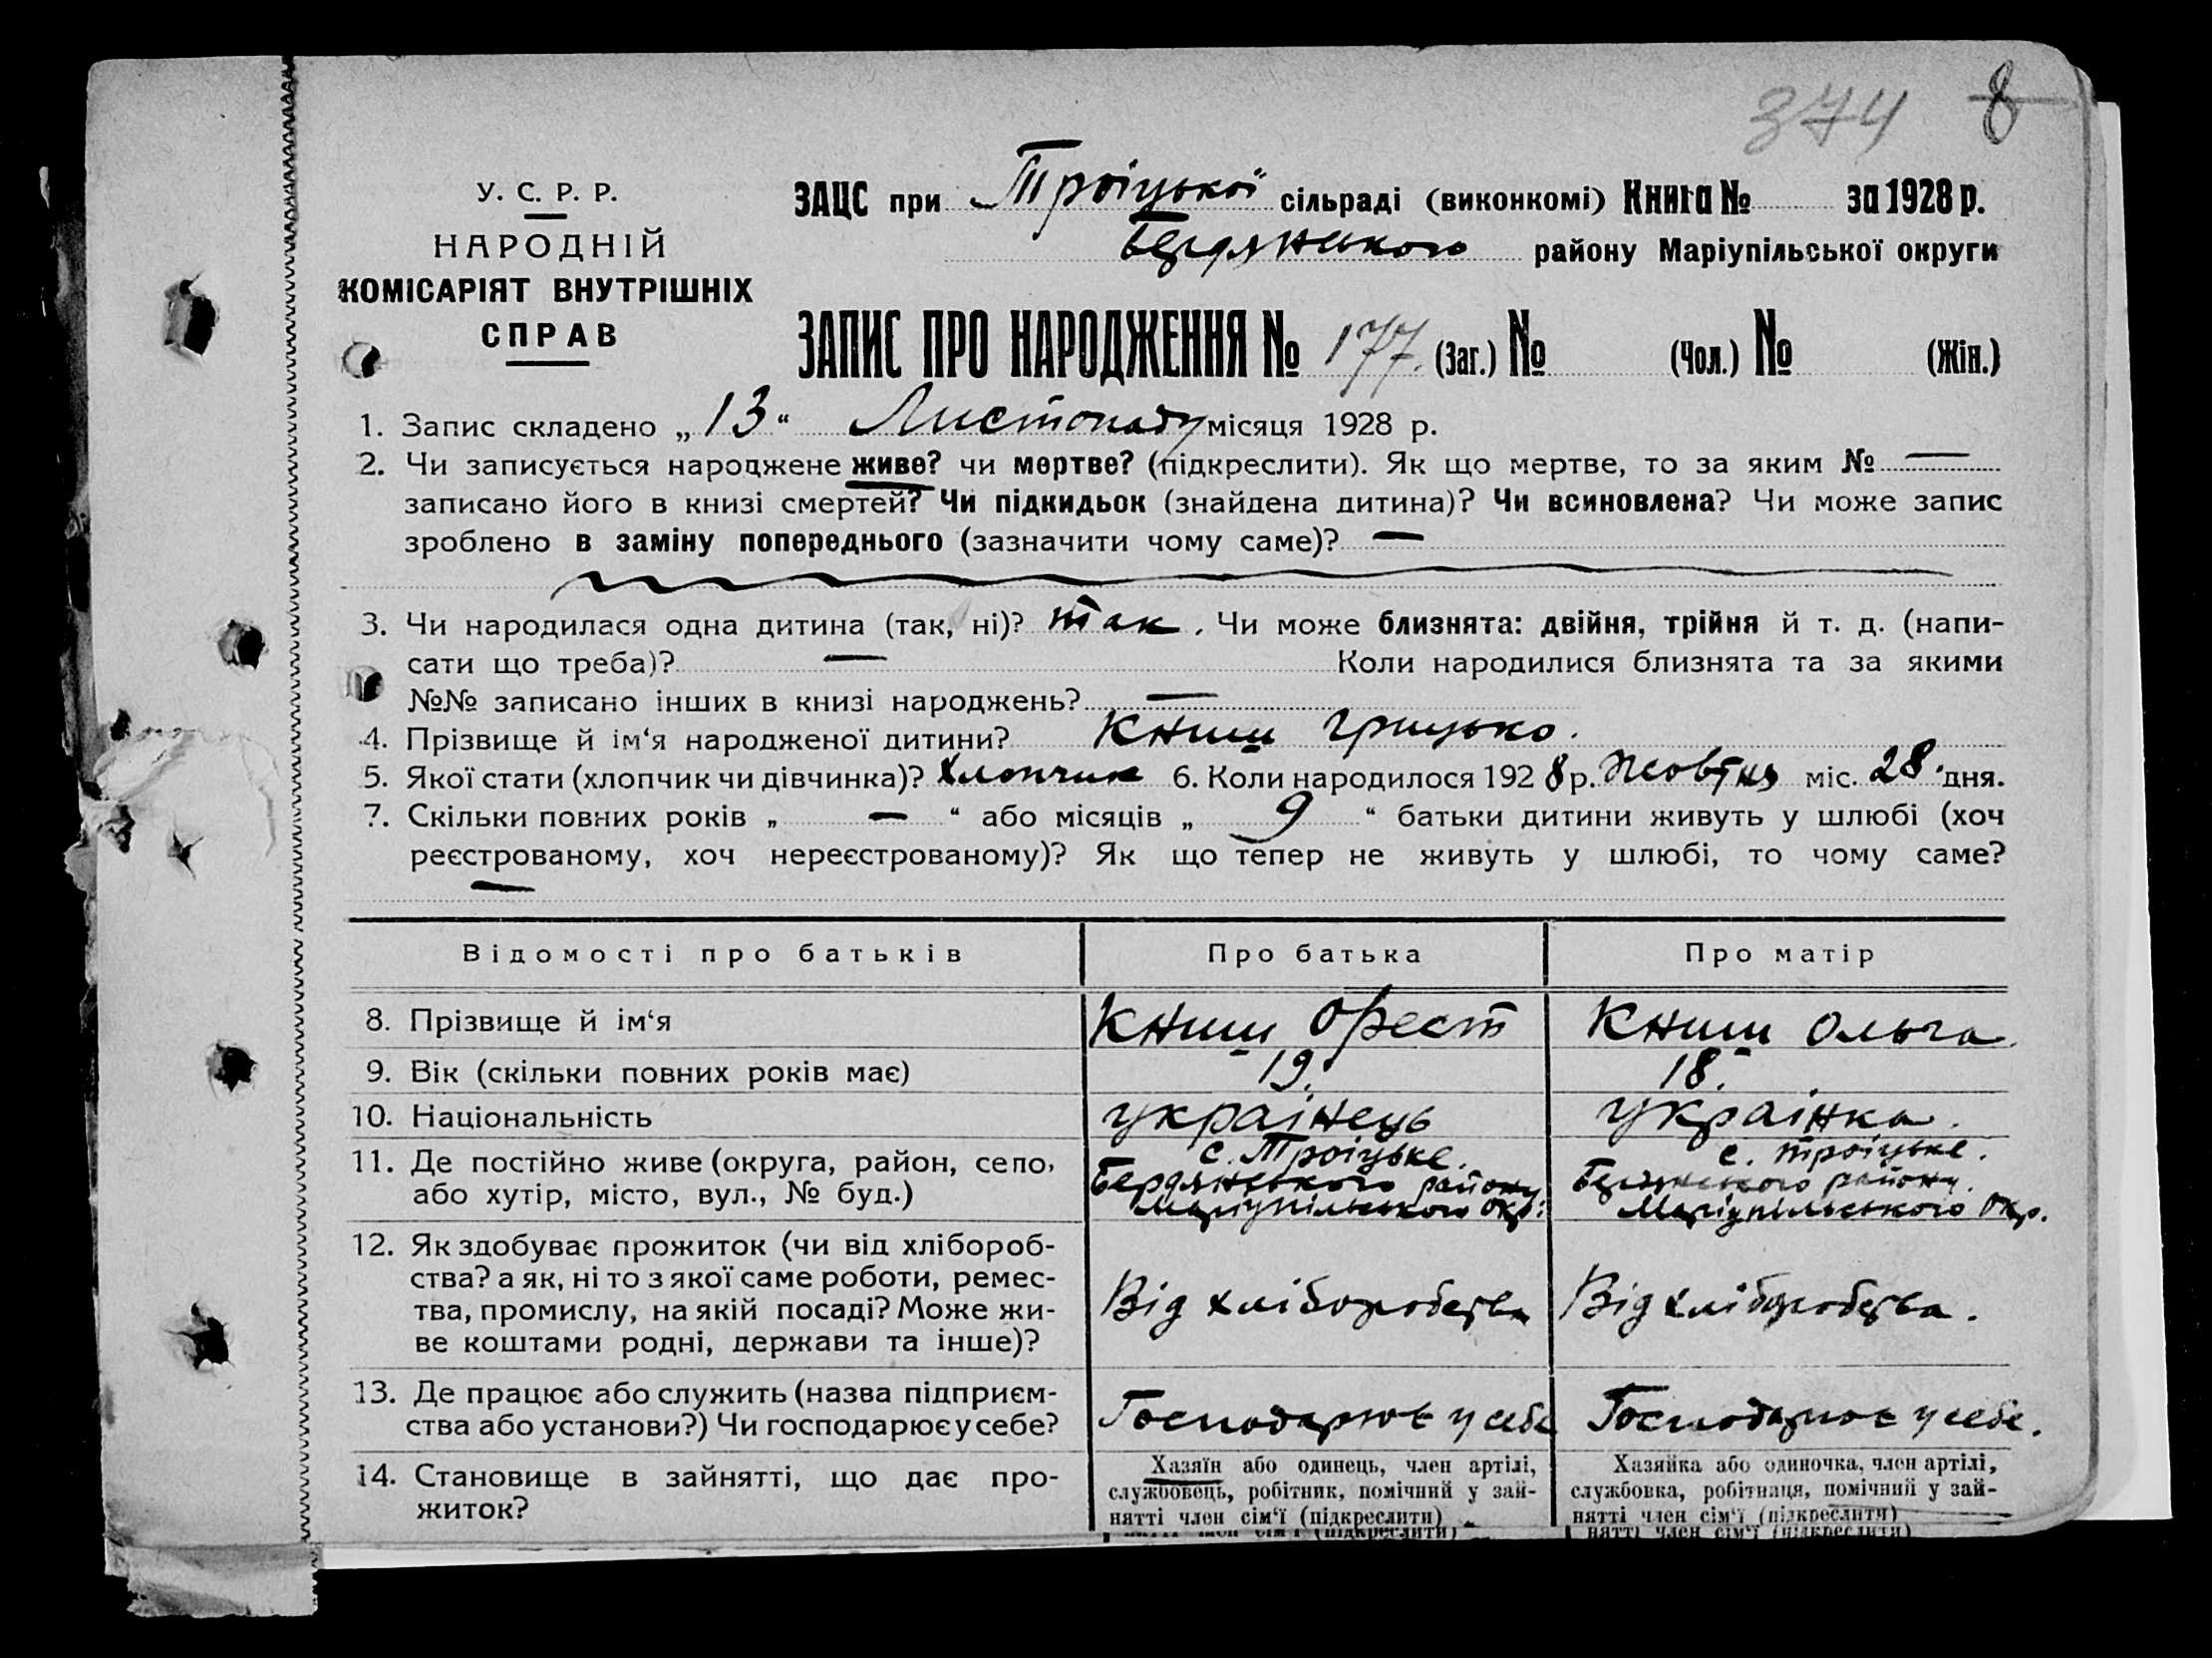 374 8
У. С. Р. Р.
НАРОДНІЙ
КОМІСАРІЯТ ВНУТРІШНІХ
СПРАВ
ЗАЦС при Троіцької сільраді (виконкомі) Книга № за 1928 р.
Бердянського району Маріупільської округи
ЗАПИС ПРО НАРОДЖЕННЯ № 177. (Заг.) № (Чол.) № (Жін.)
1. Запис складено „ 13 “ Листопаду місяця 1928 р.
2. Чи записується народжене живе? чи мертве? (підкреслити). Як що мертве, то за яким № —
записано його в книзі смертей? Чи підкидьок (знайдена дитина)? Чи всиновлена? Чи може запис
зроблено в заміну попереднього (зазначити чому саме)? —
3. Чи народилася одна дитина (так, ні)? так. Чи може близнята: двійня, трійня й т. д. (напи-
сати що треба)? — Коли народилися близнята та за якими
№№ записано інших в книзі народжень? —
4. Прізвище й ім‘я народженої дитини? Книш Грицько.
5. Якої стати (хлопчик чи дівчинка)? Хлопчик 6. Коли народилося 1928 р. Жовтня міс. 28 дня.
7. Скільки повних років „ — “ або місяців „ 9 “ батьки дитини живуть у шлюбі (хоч
реєстрованому, хоч нереєстрованому)? Як що тепер не живуть у шлюбі, то чому саме?
—
Відомості про батьків Про батька Про матір
8. Прізвище й ім‘я Книш Орест Книш Ольга.
9. Вік (скільки повних років має) 19. 18.
10. Національність українець українка.
11. Де постійно живе (округа, район, село, с. Троіцьке. с. Троіцьке.
або хутір, місто, вул., № буд.) Бердянського району Бердянського району.
Маріупільського окр. Маріупільського окр.
12. Як здобуває прожиток (чи від хлібороб-
ства? а як, ні то з якої саме роботи, ремес-
тва, промислу, на якій посаді? Може жи- Від хліборобства Від хліборобства.
ве коштами родні, держави та інше)?
13. Де працює або служить (назва підприєм-
ства або установи?) Чи господарює у себе? Господарює у себе Господарює у себе.
14. Становище в зайнятті, що дає про-
житок?
Хазяїн або одинець, член артілі,
службовець, робітник, помічний у зай-
нятті член сім‘ї (підкреслити)
Хазяйка або одиночка, член артілі,
службовка, робітниця, помічний у зай-
нятті член сім‘ї (підкреслити)
нятті член сім‘ї (підкреслити) нятті член сім‘ї (підкреслити)